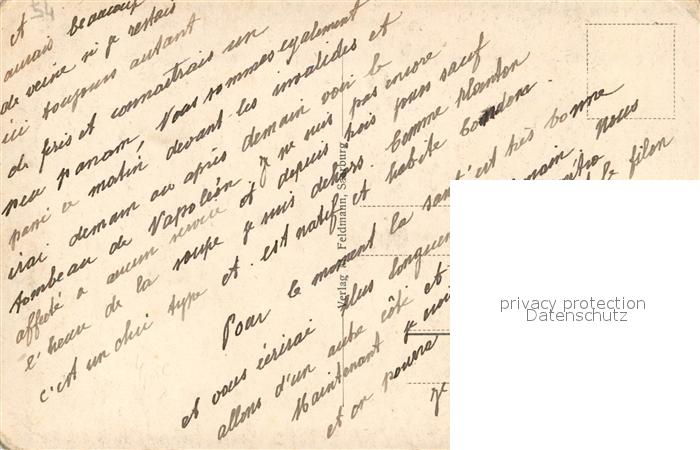 et
aurais beaucoup
de veine si je restais
ici toujours autant
de fris et connaitrais un
peu panam, Nous sommes également
passé ce matin devant les invalides et
irai demain ou après demain voir le
tombeau de Napoléon. Je ne suis pas encore
affecté a aucun service et depuis trois jours sauf
l'heure de la soupe je suis dehors. Comme Planton
c'est un chic type et est natif et habite
Pour le moment la sant' est très bonne
et vous écrirai plus longuem
allons d'un autre côté et
Maintenant je
et on pourra
je
Nous
le filon
Verlag Feldmann, Saarburg
54
privacy protection
Datenschutz